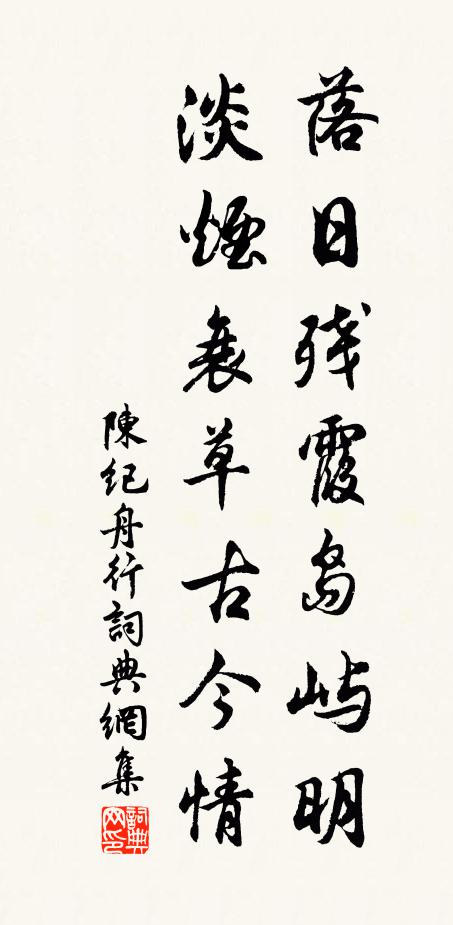 落日残霞島嶼明
淡煙衰草古今情
陳紀舟行詞典網集
詞典網印